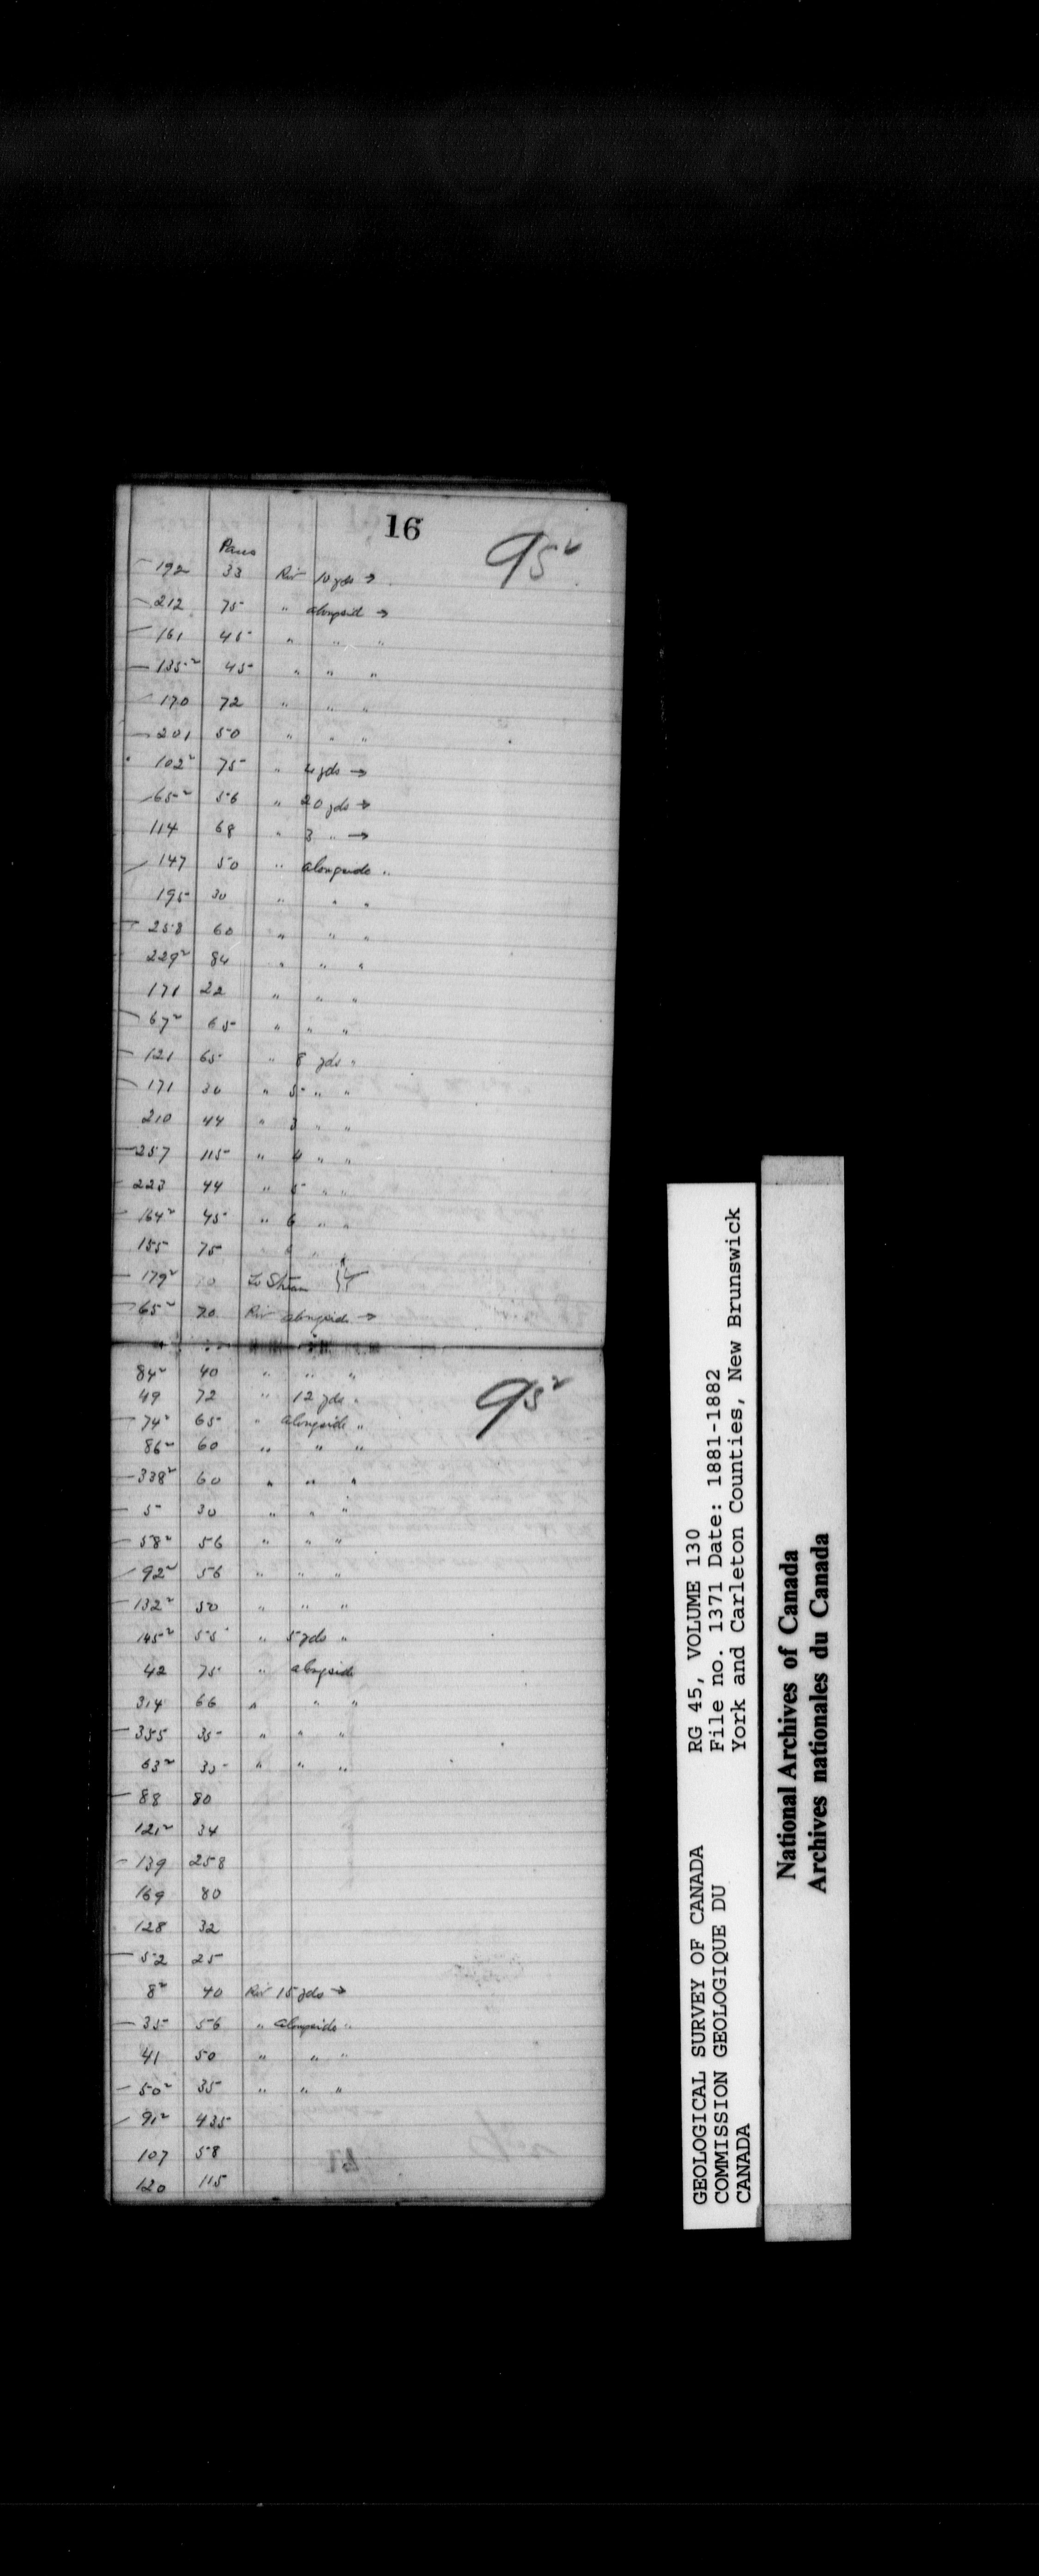 16
95²
Paces
192 33 Riv 10 yds →
212 75 " alongsid →
161 45 " " "
135² 45 " " "
170 72 " " "
201 50 " " "
102² 75 " 4 yds →
65² 56 " 20 yds →
114 68 " 3 " →
147 50 " alongside "
195 30 " " "
258 60 " " "
229² 84 " " "
171 22 " " "
67² 65 " " "
121 65 " 8 yds "
171 30 " 5 " "
210 44 " 3 " "
257 115 " 4 " "
223 44 " 5 " "
164² 45 " 6 " "
155 75 " "
179² To Stream
65² 20 Riv alongside →
84² 40 " " "
95²
49 72 " 12 yds "
74² 65 " alongside "
86² 60 " " "
338² 60 " " "
5 30 " " "
58² 56 " " "
92² 56 " " "
132² 50 " " "
145² 55 " 5 yds "
42 75 " alongside
314 66 " " "
355 35 " " "
63² 35 " " "
88 80
121² 34
139 258
169 80
128 32
52 25
8² 40 Riv 15 yds →
35 56 " alongside "
41 50 " " "
50² 35 " " "
91² 435
107 58
120 115
GEOLOGICAL SURVEY OF CANADA
COMMISSION GEOLOGIQUE DU
CANADA
RG 45, VOLUME 130
File no. 1371 Date: 1881-1882
York and Carleton Counties, New Brunswick
National Archives of Canada
Archives nationales du Canada